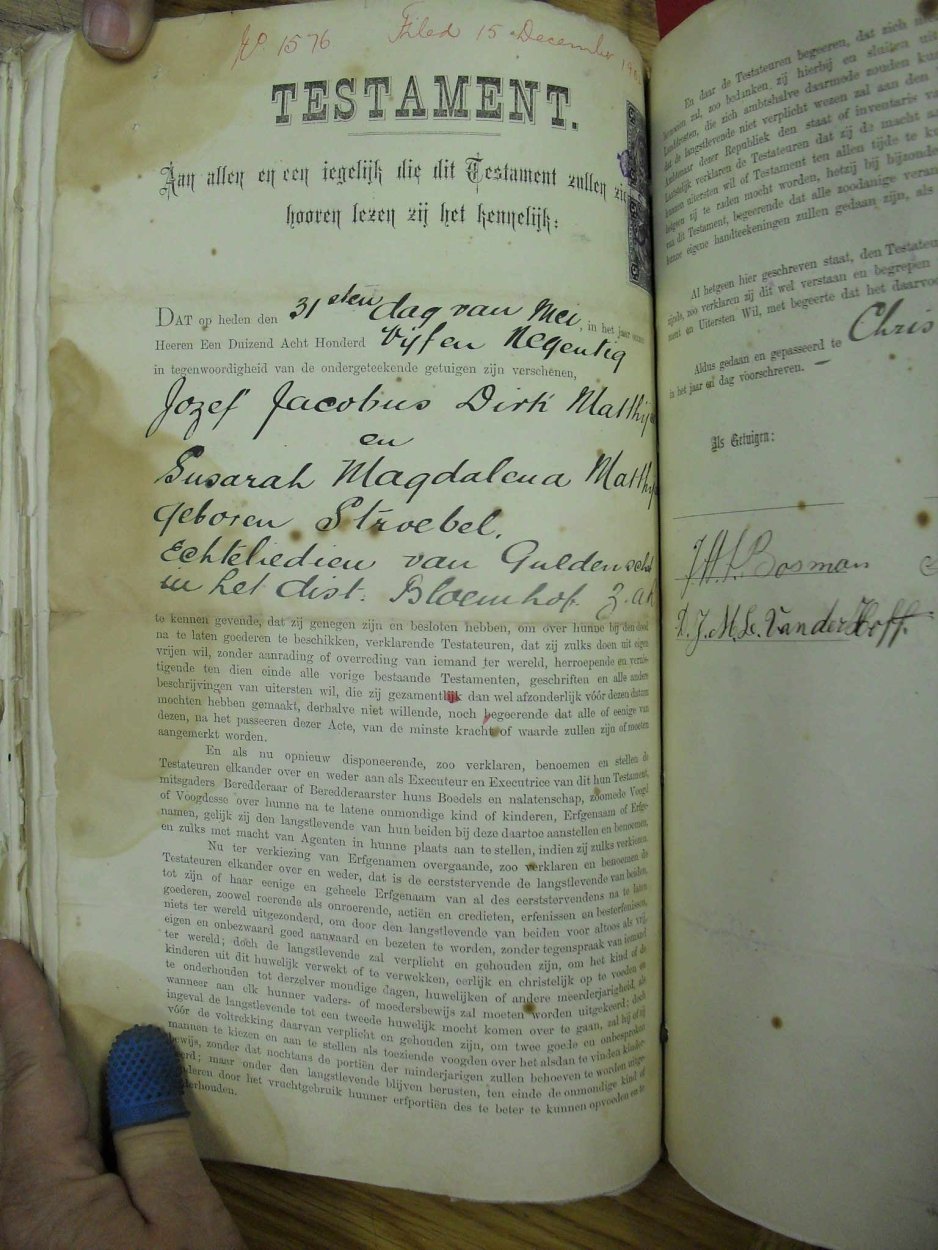 No 1576 Filed 15 December
TESTAMENT.
Aan allen en een iegelijk die dit Testament zullen
hooren lezen zij het kennelijk:
DAT op heden den 31sten dag van Mei, in het jaar
Heeren Een Duizend Acht Honderd Vijf en Negentig
in tegenwoordigheid van de ondergeteekende getuigen zijn verschenen,
Jozef Jacobus Dirk
en
Susarah Magdalena
geboren Stroebel.
Echteliedien van
in het dist. Bloemhof Z.a.R.
te kennen gevende, dat zij genegen zijn en besloten hebben, om over hunne bij den dood
na te laten goederen te beschikken, verklarende Testateuren, dat zij zulks doen uit eigen
vrijen wil, zonder aanrading of overreding van iemand ter wereld, herroepende en vernie-
tigende ten dien einde alle vorige bestaande Testamenten, geschriften en alle andere
beschrijvingen van uitersten wil, die zij gezamentlijk dan wel afzonderlijk vóór dezen datum
mochten hebben gemaakt, derhalve niet willende, noch begeerende dat alle of eenige van
dezen, na het passeeren dezer Acte, van de minste kracht of waarde zullen zijn of moeten
aangemerkt worden.
En als nu opnieuw disponeerende, zoo verklaren, benoemen en stellen de
Testateuren elkander over en weder aan als Executeur en Executrice van dit hun Testament,
mitsgaders Beredderaar of Beredderaarster huns Boedels en nalatenschap, zoomede Voogd
of Voogdesse over hunne na te latene onmondige kind of kinderen, Erfgenaam of Erfge-
namen, gelijk zij den langstlevende van hun beiden bij deze daartoe aanstellen en benoemen,
en zulks met macht van Agenten in hunne plaats aan te stellen, indien zij zulks verkiezen.
Nu ter verkiezing van Erfgenamen overgaande, zoo verklaren en benoemen de
Testateuren elkander over en weder, dat is de eerststervende de langstlevende van beiden,
tot zijn of haar eenige en geheele Erfgenaam van al des eerststervendens na te laten
goederen, zoowel roerende als onroerende, actiën en credieten, erfenissen en besterfenissen,
niets ter wereld uitgezonderd, om door den langstlevende van beiden voor altoos als vrij,
eigen en onbezwaard goed aanvaard en bezeten te worden, zonder tegenspraak van iemand
ter wereld; doch de langstlevende zal verplicht en gehouden zijn, om het kind of de
kinderen uit dit huwelijk verwekt of te verwekken, eerlijk en christelijk op te voeden en
te onderhouden tot derzelver mondige dagen, huwelijken of andere meerderjarigheid, als
wanneer aan elk hunner vaders- of moedersbewijs zal moeten worden uitgekeerd; doch
ingeval de langstlevende tot een tweede huwelijk mocht komen over te gaan, zal hij of zij
vóór de voltrekking daarvan verplicht en gehouden zijn, om twee goede en onbesproken
mannen te kiezen en aan te stellen als toeziende voogden over het alsdan te vinden kinder-
bewijs, zonder dat nochtans de portiën der minderjarigen zullen behoeven te worden uitge-
keerd; maar onder den langstlevende blijven berusten, ten einde de onmondige kind of
kinderen door het vruchtgebruik hunner erfportiën des te beter te kunnen opvoeden en te
onderhouden.
En daar de Testateuren begeeren, dat zich
zal, zoo bedanken, zij hierbij en sluiten
die zich ambtshalve daarmede zouden
dat de langstlevende niet verplicht wezen zal aan den
Ambtenaar dezer Republiek den staat of inventaris
verklaren de Testateuren dat zij de macht
hunnen uitersten wil of Testament ten allen tijde te
zij te raden mocht worden, hetzij bij
van dit Testament, begeerende dat alle zoodanige
hunne eigene handteekeningen zullen gedaan zijn, als
Al hetgeen hier geschreven staat, den
zijnde, zoo verklaren zij dit wel verstaan en begrepen
en Uitersten Wil, met begeerte dat het
Aldus gedaan en gepasseerd te Chris
in het jaar en dag voorschreven.
Als Getuigen:
Bosman
Van der Hoff